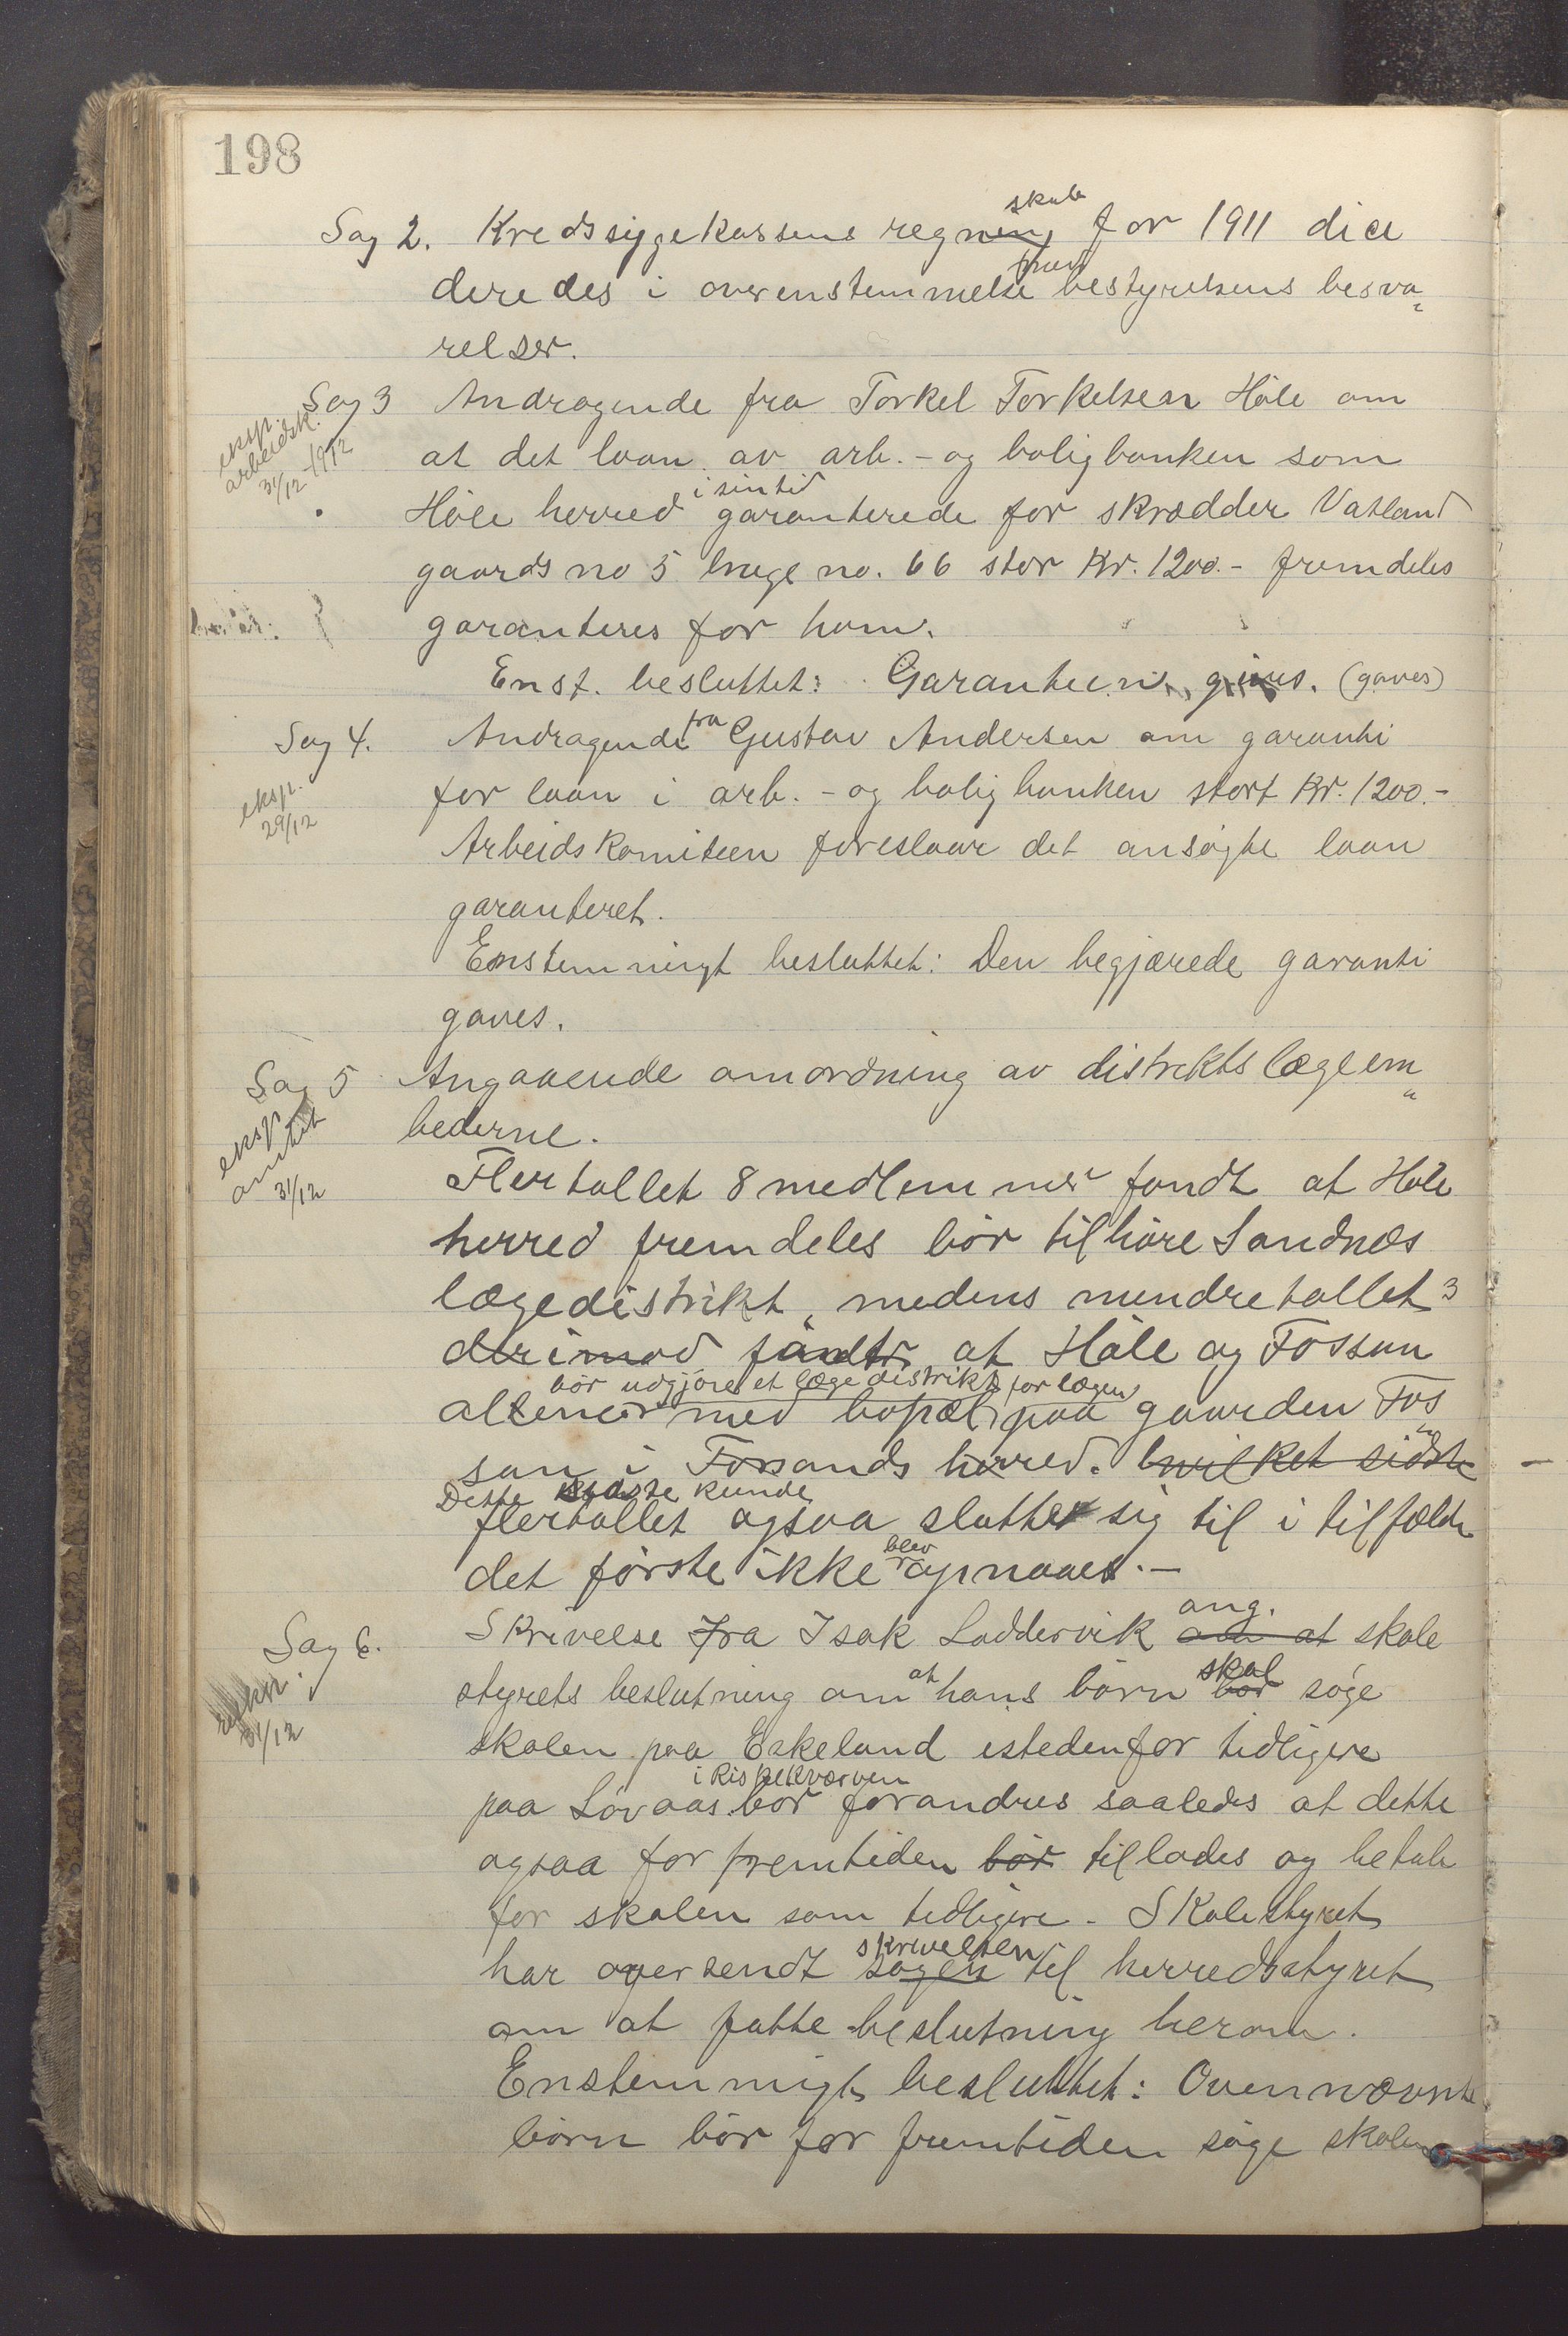 198
skab
Sag 2. Kredssygekassens regning for 1911 dici
deredes i overenstemmelse bestyrelsens besva
relser.
Sag 3 Andragende fra Torkel Torkelsen Höle om
eksp. arbeidsk. 31/12-1912
at det laan av arb.- og boligbanken som
i sin tid
Höle herred garanterede for skrædder Vatland
gaards no 5 brugs no. 66 stor Kr. 1200.- fremdeles
garanteres for ham.
Enst. besluttet: Garantien gives. (gaves)
Sag 4. Andragende fra Gustav Andersen om garanti
eksp. 29/12
for laan i arb.- og boligbanken stort Kr. 1200.-
Arbeidskomiteen foreslaar det ansögte laan
garanteret.
Enstemmigt besluttet: Den begjærede garanti
gaves.
Sag 5 Angaaende omordning av distriktslægeem
eksp. amtet 31/12
bederne.
Flertallet 8 medlemmer fandt at Höle
herred fremdeles bör tilhöre Sandnæs
lægedistrikt, medens mindretallet 3
derimod fandt at Höle og Fossan
bör udgjöre et lægedistrikt for lægen
altener med bopæl paa gaarden Fos
san i Forsands herred. hvilket sidste
Dette sidste kunde
flertallet ogsaa slutte sig til i tilfælde
blev
det förste ikke opnaaet.-
ang.
Sag 6. Skrivelse fra Isak Laddervik om at skole
eksp. 31/12
at skal
styrets beslutning om hans börn bör söge
skolen paa Eskeland istedenfor tidligere
i Riskekværven
paa Lövaas bör forandres saaledes at dette
ogsaa for fremtiden bör tillades og betale
for skolen som tidligere. Skolestyret
skrivelsen
har oversendt sagen til herredsstyret
om at fatte beslutning herom.
Enstemmigt besluttet: Ovennævnte
börn bör for fremtiden söge skolen